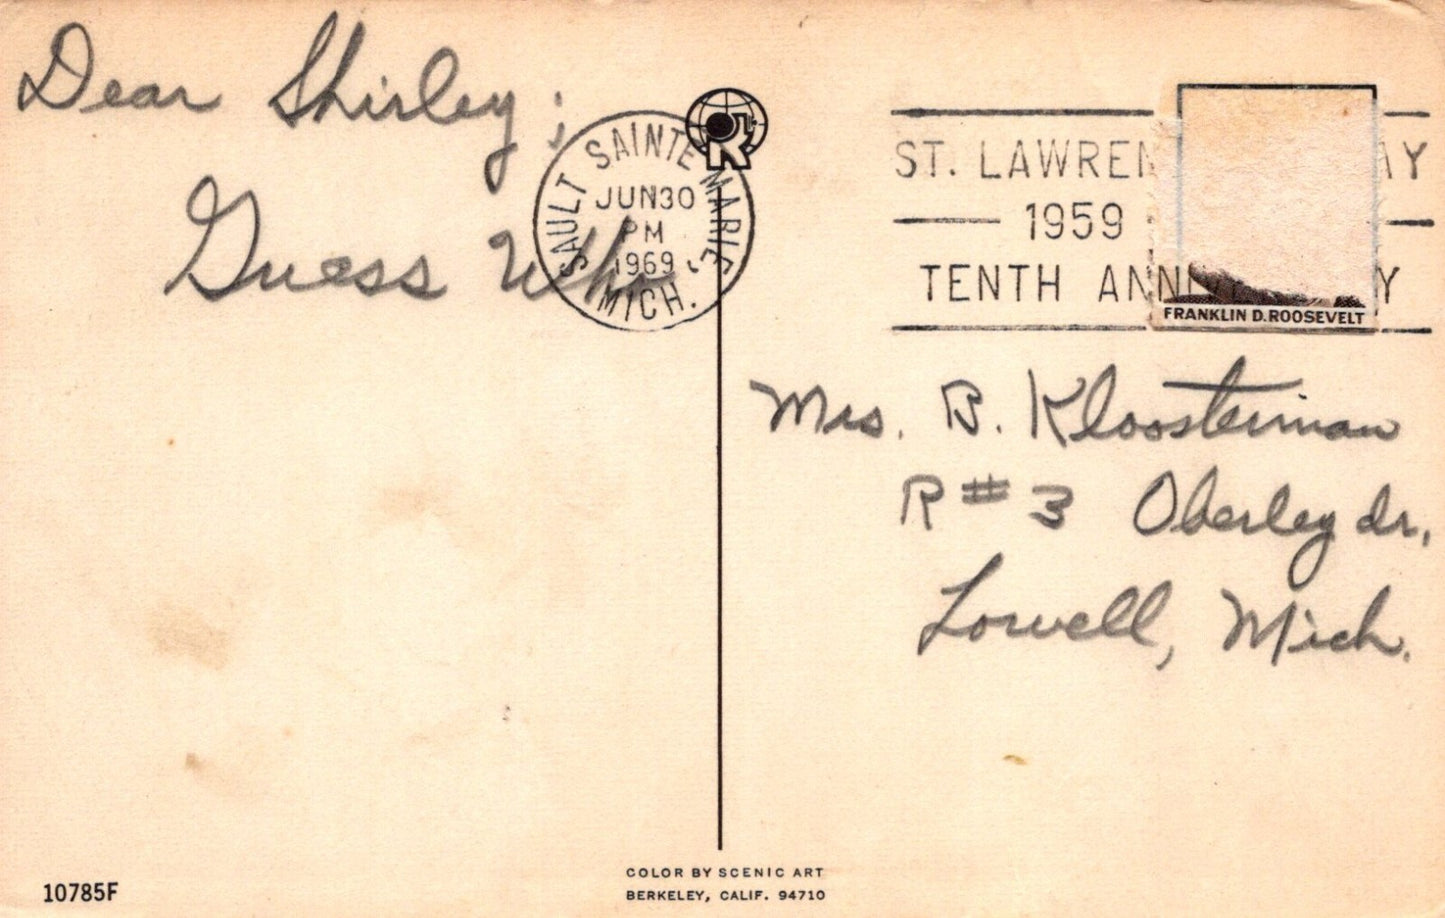 Dear Shirley;
Guess Who
SAULT SAINTE MARIE, MICH.
JUN 30
PM
1969
R
ST. LAWREN AY
1959
TENTH ANNIVE Y
FRANKLIN D. ROOSEVELT
Mrs. B. Kloosterman
R # 3 Oberley dr,
Lowell, Mich.
10785F
COLOR BY SCENIC ART
BERKELEY, CALIF. 94710